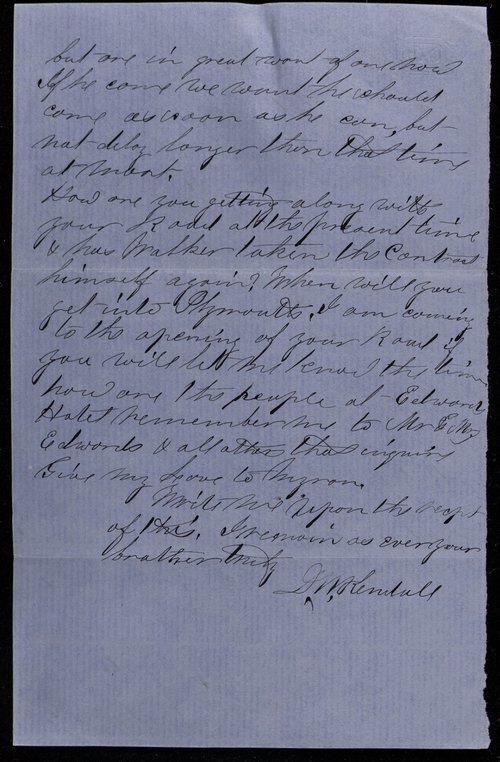 but are in great want of one now
If he come we want he should
come as soon as he can, but
not delay longer then that time
at most.
How are you getting along with
your Road at the present time
& has Walker taken the Contract
himself again? When will you
get into Plymouth. I am coming
to the opening of your Road if
you will let me know the time
how are the people at Edwards
Hotel remember me to Mr & Mrs
Edwards & all others that inquire
Give my Love to Myron.
Write me upon the recpt
of this. I remain as ever your
brother truly
Kendall